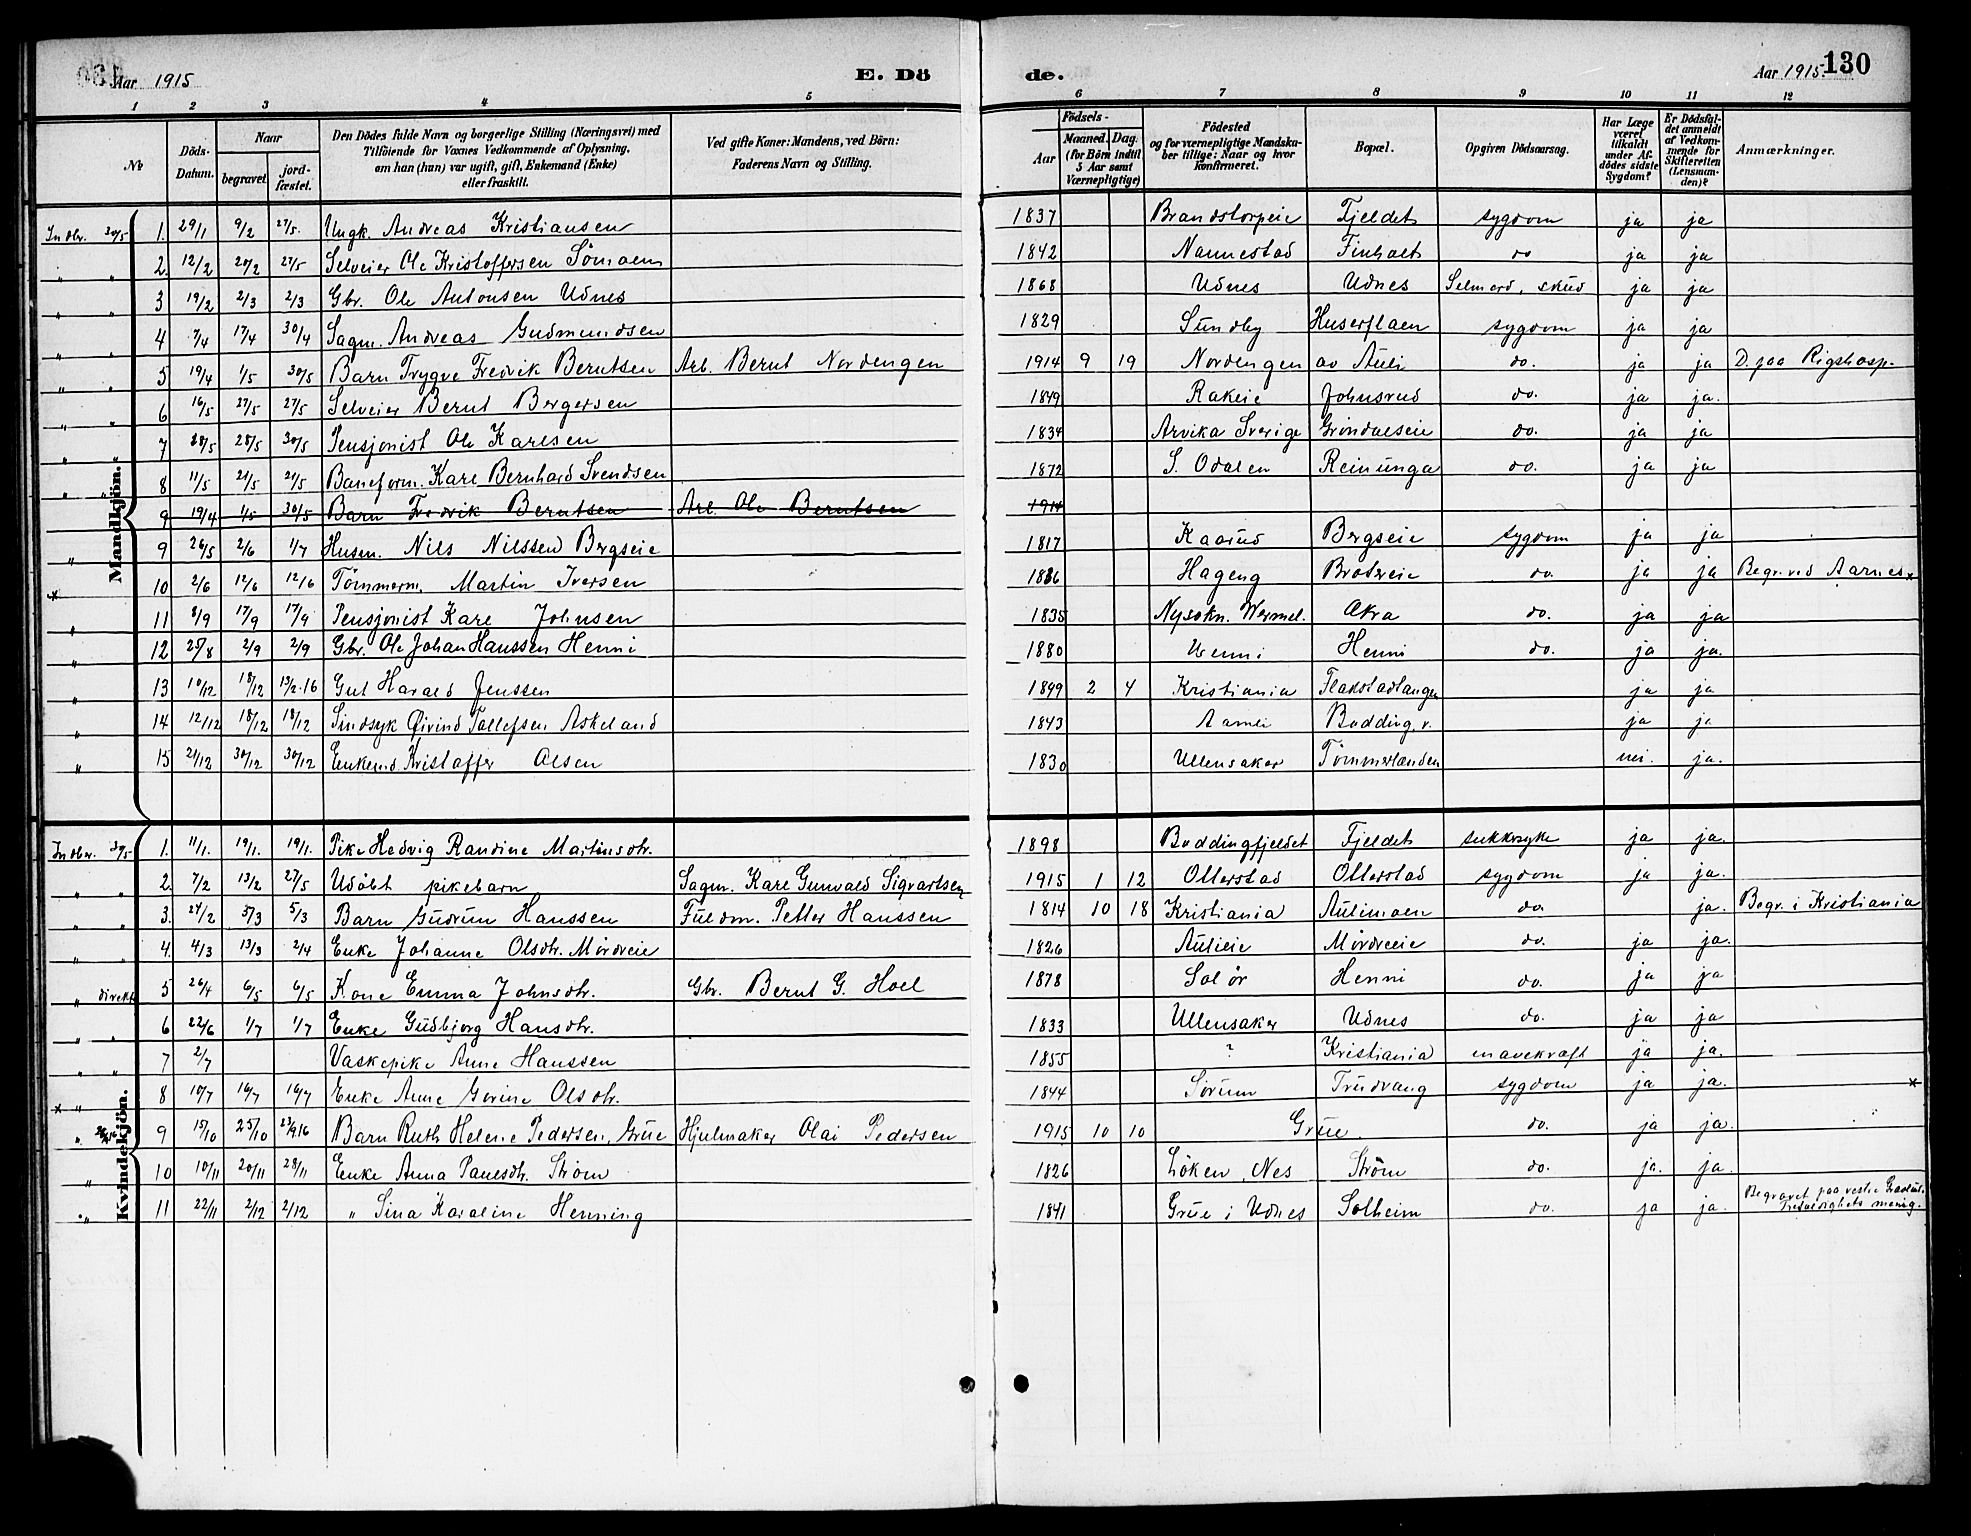 Aar 1915
E. Dö
de.
Aar 1915. 130
1 2 3 4 5 6 7 8 9 10 11 12
No
Döds-Datum.
Naar
begravet
jord-fæstet.
Den Dödes fulde Navn og borgerlige Stilling (Næringsvei) med
Tilföiende for Voxnes Vedkommende af Oplysning,
om han (hun) var ugift, gift, Enkemand (Enke)
eller fraskilt.
Ved gifte Koner: Mandens, ved Börn:
Faderens Navn og Stilling.
Födsels-
Aar
Maaned. Dag.
(for Börn indtil
5 Aar samt
Værnepligtige)
Födested
og for værnepligtige Mandska-
ber tillige: Naar og hvor
konfirmeret.
Bopæl.
Opgiven Dödsaarsag.
Har Læge
været
tilkaldt
under Af-
dödes sidste
Sygdom?
Er Dödsfal-
det anmeldt
af Vedkom-
mende for
Skifteretten
(Lensman-
den)?
Anmærkninger.
Mandkjön.
Indbr. 30/5 1. 29/1 9/2 27/5. Ungk. Andreas Kristiansen 1837 Brandstorpeie Fjeldet sygdom ja ja
" " 2. 12/2 20/2 27/5 Selveier Ole Kristoffersen Sömoen 1842 Nannestad Finholt do ja ja
" " 3 19/2 2/3 2/3 Gbr. Ole Antonsen Udnes 1868 Udnes Udnes Selmord, skud ja ja
" " 4 7/4 17/4 30/4 Sagm. Andreas Gudmundsen 1829 Sundby Huserflaen sygdom ja ja
" " 5 19/4 1/5 30/5 Barn Trygve Fredrik Berntsen Arb. Bernt Nordengen 1914 9 19 Nordengen av Auli do. ja ja D. paa Rigshosp.
" " 6 16/5 27/5 27/5 Selveier Bernt Bergersen 1849 Rakeie Johnsrud do. ja ja.
" " 7 20/5 28/5 30/5 Pensjonist Ole Karlsen 1834 Arvika Sverige Gröndalseie do. ja ja
" " 8 11/5 21/5 21/5 Baneform. Karl Bernhard Svendsen 1872 S. Odalen Reinunga do. ja ja
9 19/4 1/5 30/5 Barn Fredrik Berntsen Arb. Ole Berntsen 1914
" 9 26/5 2/6 1/7 Husm. Nils Nilssen Bergseie 1817 Kaarud Bergseie sygdom ja ja
x 10 2/6 12/6 12/6 Tömmerm. Martin Iversen 1836 Hageng Brotveie do. ja ja Begr. ved Aarnes x
" 11 8/9 17/9 17/9 Pensjonist Karl Johnsen 1835 Nysokn. Wermel. Akra do. ja ja
" 12 25/8 2/9 2/9 Gbr. Ole Johan Hanssen Henni 1880 Henni Henni do. ja ja.
" 13 10/12 18/12 13/2-16 Gut Harald Jenssen 1899 2 4 Kristiania Flakstadtangen ja ja
" 14 12/12 18/12 18/12 Sindsyk Øivind Tallefsen Askeland 1843 Aamli Budding. v. ja ja
" 15 21/12 30/12 30/12 Enkemd. Kristoffer Olsen 1830 Ullensaker Tömmerlunden nei. ja.
Kvindekjön.
Indber. 30/5 1. 11/1. 19/1. 19/1. Pike Hedvig Randine Martinsdtr. 1898 Buddingfjeldet Fjeldet sukkersyke ja ja.
" " 2. 7/2 13/2 27/5 Udöbt pikebarn Sagm. Karl Gunvald Sigvartsen 1915 1 12 Ollerstad Ollerstad sygdom ja ja.
" " 3. 24/2 5/3 5/3 Barn Gudrun Hanssen Fuldm. Petter Hanssen 1814 10 18 Kristiania Aulimoen do. ja. Begr. i Kristiania
" " 4. 4/3 13/3 2/4 Enke Johanne Olsdtr. Mördreie 1826 Aulieie Mördreeie do. ja ja.
" direkt 5 26/4 6/5 6/5 Kone Emma Johnsdtr. Gbr. Bernt G. Hoel 1878 Solör Henni do. ja ja
" " 6 22/6 1/7 1/7 Enke Gudbjorg Hansdtr. 1833 Ullensaker Udnes do. ja ja
" " 7 2/7 Vaskepike Anne Hanssen 1855 ? Kristiania mavekræft ja ja.
x " 8 10/7 16/7 16/7 Enke Anne Gorine Olsdtr. 1844 Sörum Trudvang sygdom ja ja. x
" 9 15/10 25/10 23/4 16 Barn Ruth Helene Pedersen, Grue Hjulmaker Olai Pedersen 1915 10 10 Grue. do. ja ja.
" 10 10/11 20/11 28/11 Enke Anna Paulsdtr. Ström 1826 Löken, Nes Ström do. ja. ja.
" 11 22/11 2/12 2/12 " Sina Karoline Henning 1841 Grue i Udnes Solheim do. ja ja. Begravet paa vestre Gravlund.
menig.